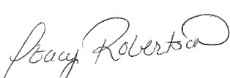 Stacy Robertson